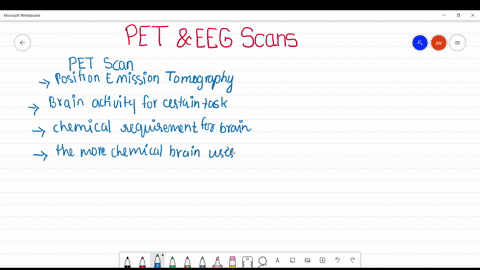 Microsoft Whiteboard
PET & EEG Scans
PET Scan
→ Position Emission Tomography
→ Brain activity for certain task
→ chemical requirement for brain
→ the more chemical brain uses